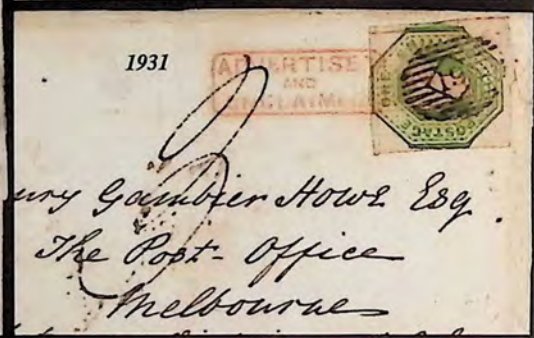 1931
ADVERTISE
AND
ONE
POSTAGE
ury Gambier Howe Esq.
The Post-Office
Melbourne